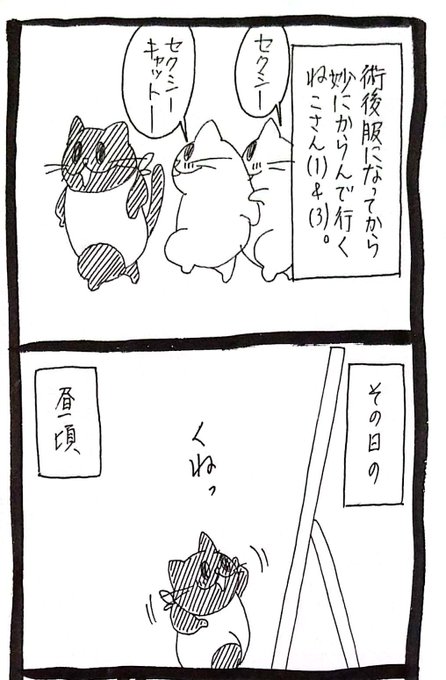 術後服になってから
妙にからんで行く
ねこさん(1)&(3)。
セクシー
セクシー
キャットー
その日の
昼頃
くねっ